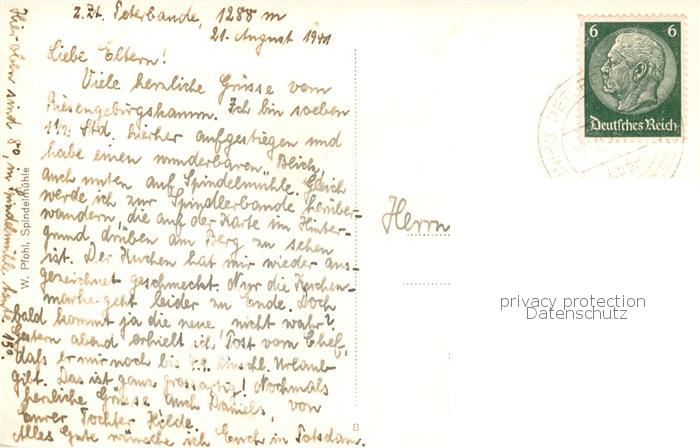 z. Zt. Peterbaude, 1288 m
21. August 1941
Liebe Eltern!
Viele herzliche Grüsse vom
Riesengebirgskamm. Ich bin soeben
1½ Std. hierher aufgestiegen und
habe einen wunderbaren Blick,
auch unten auf Spindelmühle. Gleich
werde ich zur Spindlerbaude herüber-
wandern, die auf der Karte im Hinter-
grund drüben am Berg zu sehen
ist. Der Kuchen hat mir wieder aus-
gezeichnet geschmeckt. Nur die Kuchen-
marke geht leider zu Ende. Doch
bald kommt ja die neue, nicht wahr?
Gestern abend erhielt ich Post vom Chef,
daß er mir noch bis einschl. Urlaub
gibt. Das ist ganz grossartig! Nochmals
herzliche Grüsse auch Daniels, von
Eurer Tochter Hilde.
Alles Gute wünsche ich Euch in Potsdam.
Hier oben sind 8°, in Spindelmühle heute 15°.
W. Pfohl, Spindelmühle
B
Herrn
6 6
Deutsches Reich
privacy protection
Datenschutz